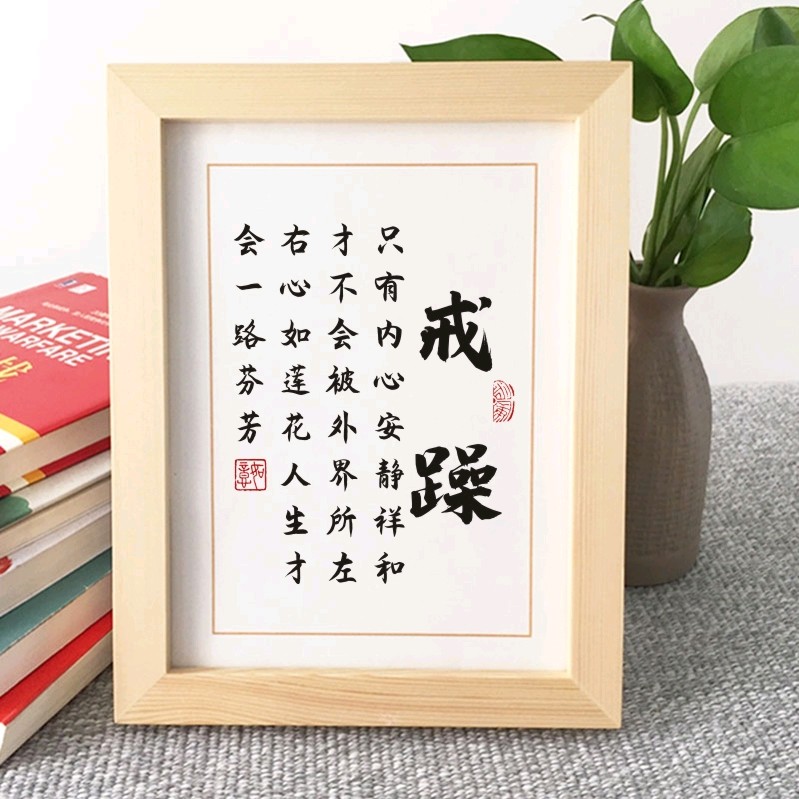 戒躁
只有内心安静祥和
才不会被外界所左
右心如莲花人生才
会一路芬芳
如意
MARKETING
WARFARE